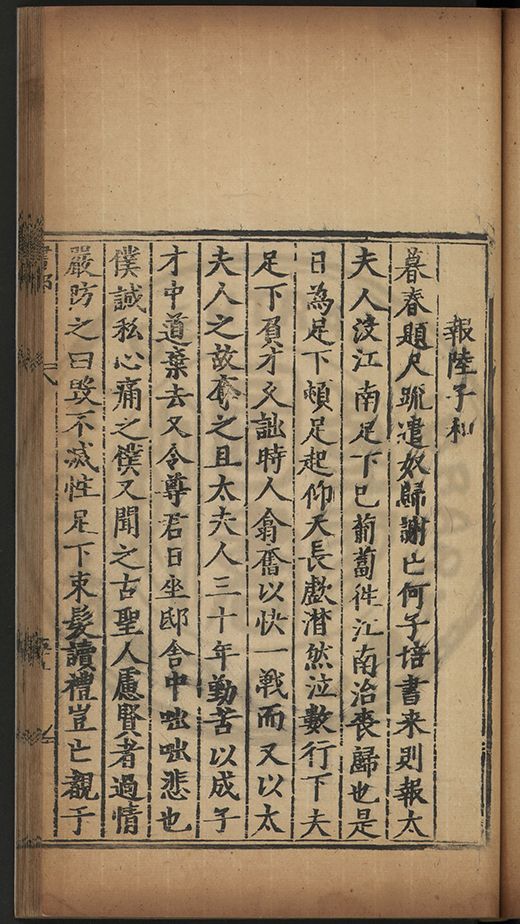 報陸子和
暮春題尺疏遣奴歸謝亡何子培書来則報太
夫人沒江南足下已葡蔔伻江南治喪歸也是
日為足下頓足起仰天長歔潸然泣數行下夫
足下負才久詘時人翕奮以快一戰而又以太
夫人之故奪之且太夫人三十年勤苦以成子
才中道棄去又令尊君日坐邸舍中咄咄悲也
僕誠私心痛之僕又聞之古聖人慮賢者過情
嚴防之曰毀不滅性足下束髮讀禮豈亡觀于